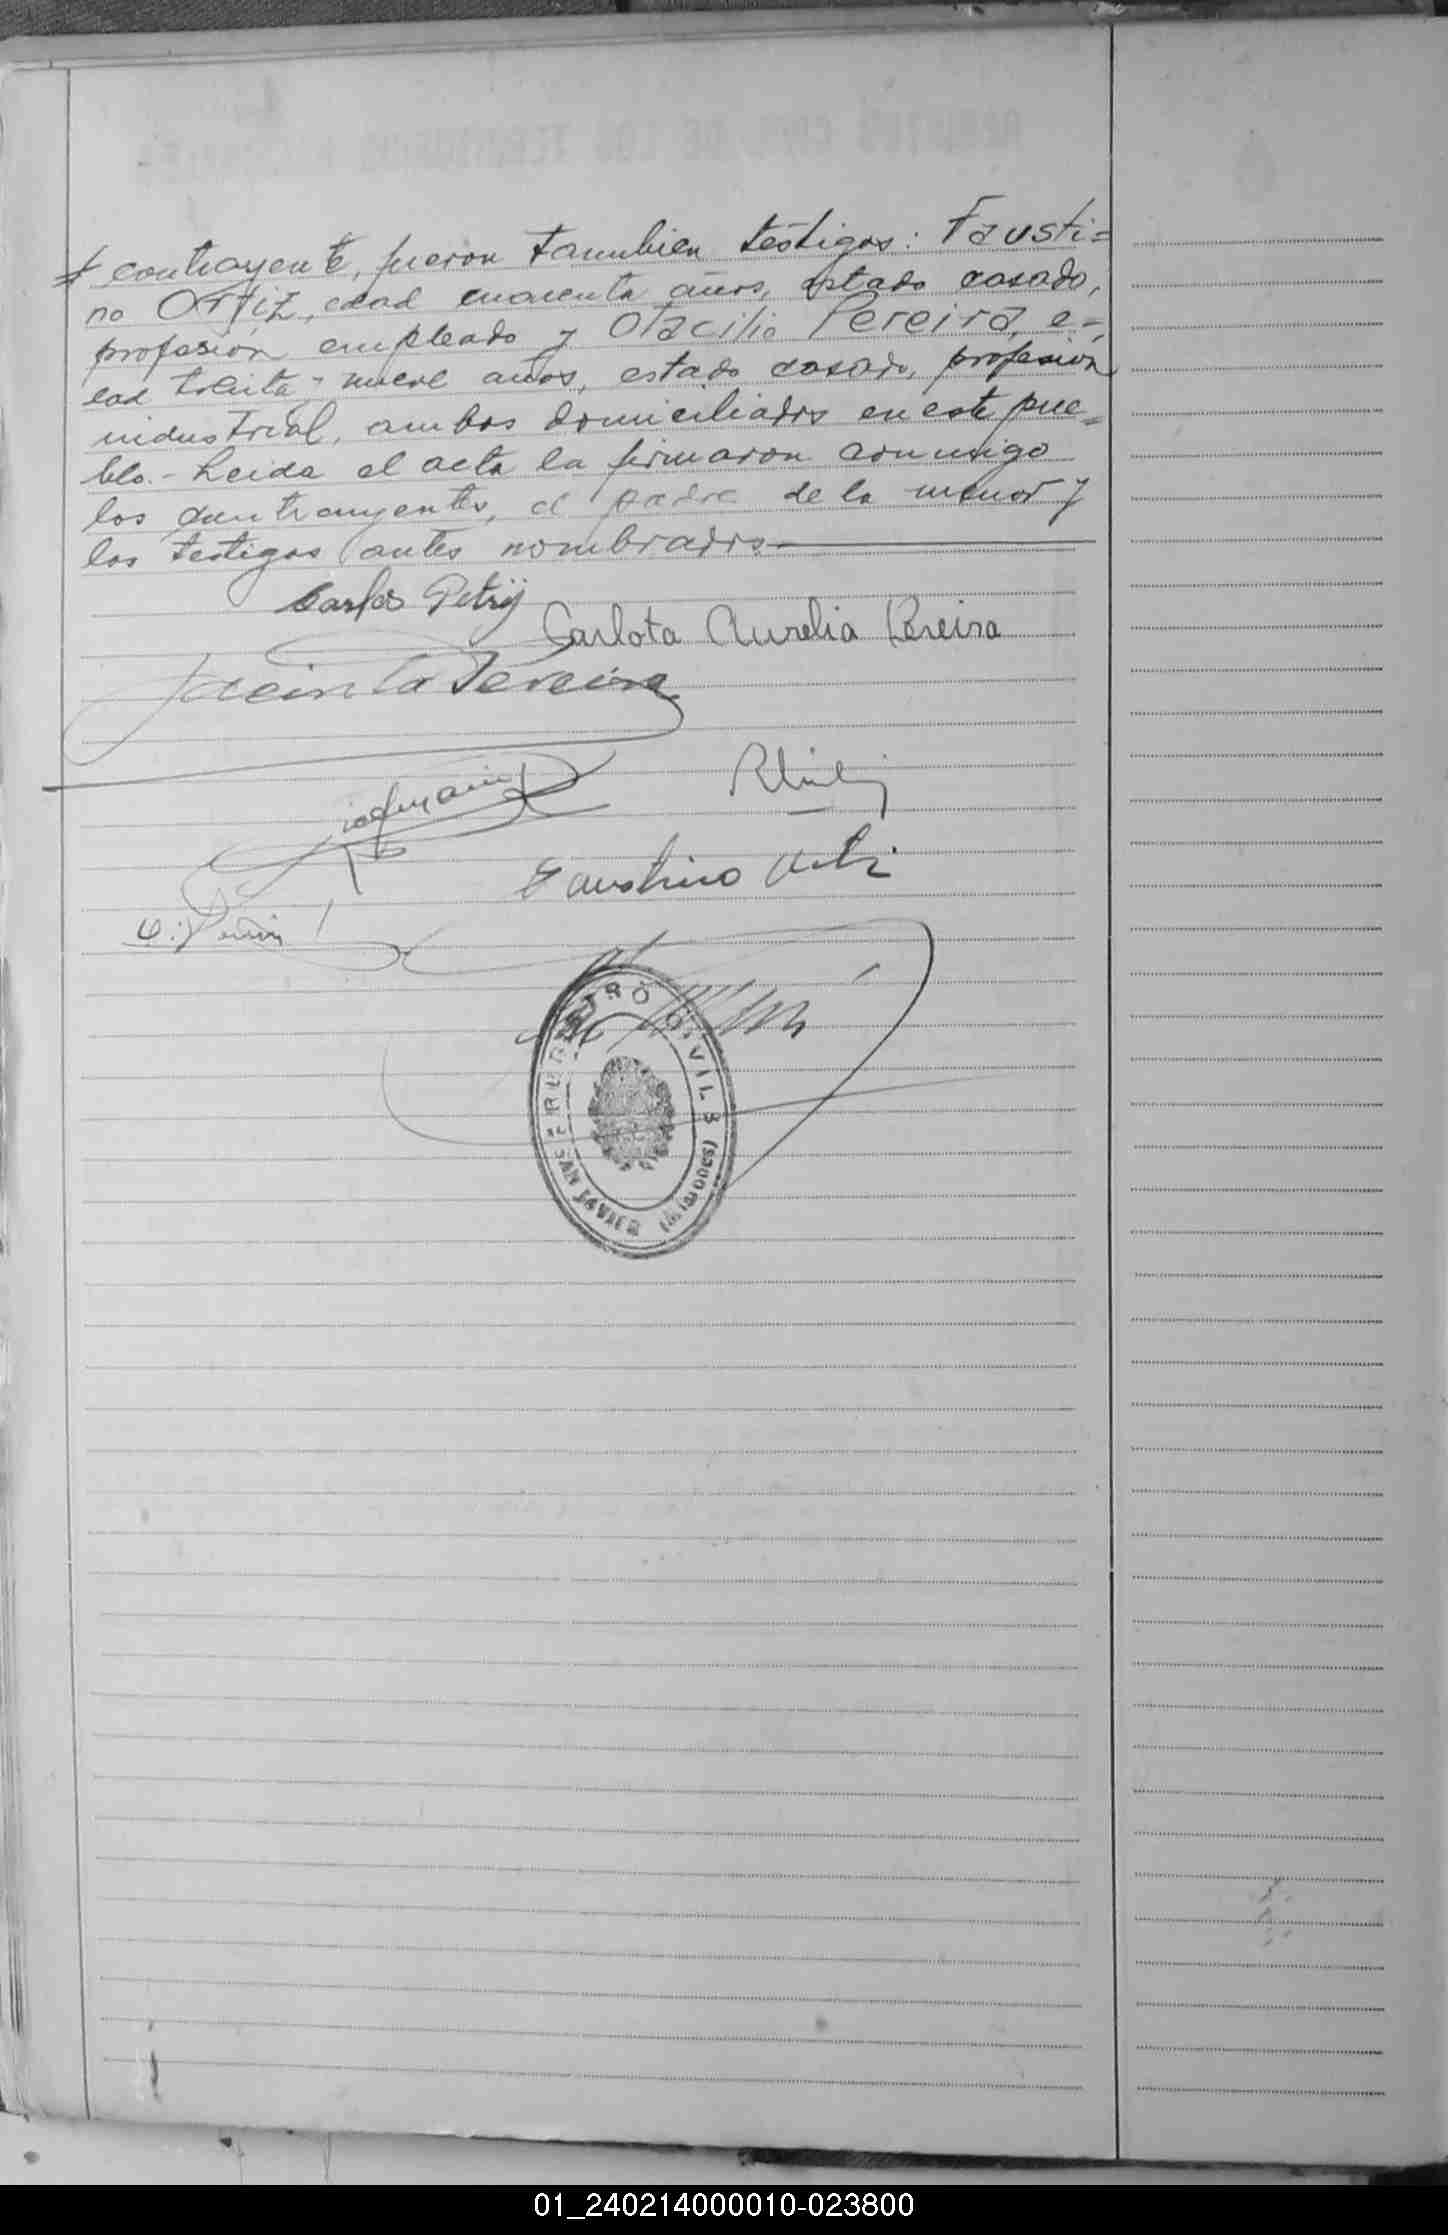 contrayente, fueron tambien testigos: Fausti=
no Ortiz, edad cuarenta años, estado casado,
profesión empleado y Otacilio Pereira, e-
dad treinta y nueve años, estado casado, profesión
industrial, ambos domiciliados en este pue=
blo.- Leida el acta la firmaron conmigo
los contrayentes, el padre de la menor y
los testigos antes nombrados
Carlos Petrÿ
Carlota Aurelia Pereira
Jacinto Pereira
Faustino Ortiz
O. Pereira
REGISTRO CIVIL
SAN JAVIER (Misiones)
01_240214000010-023800